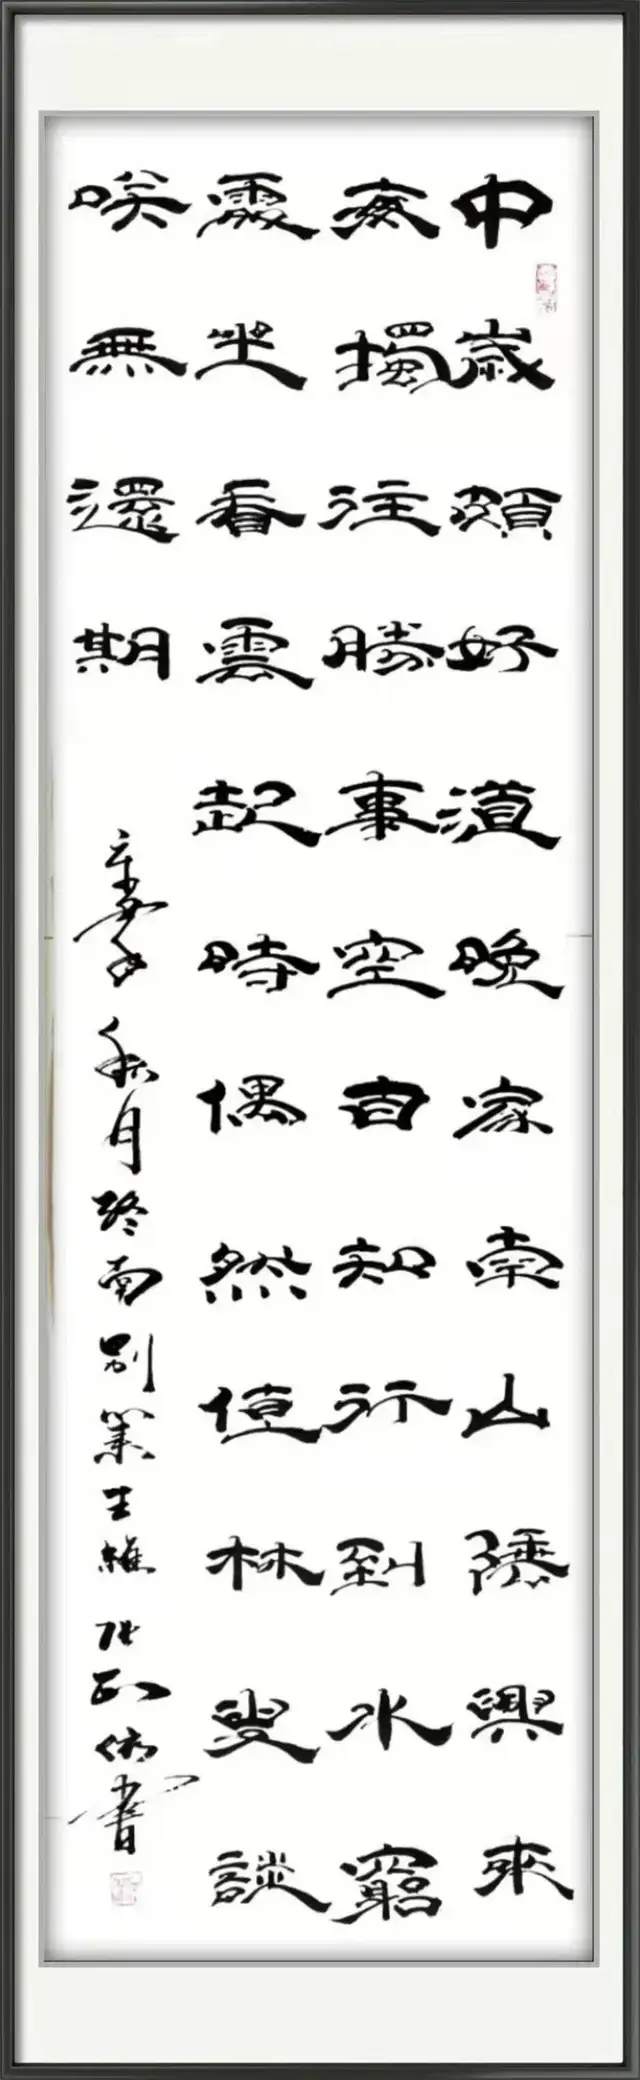 中歲頗好道晚家南山陲興來
每獨往勝事空自知行到水窮
處坐看雲起時偶然值林叟談
咲無還期
辛丑年秋月終南别業王維 書